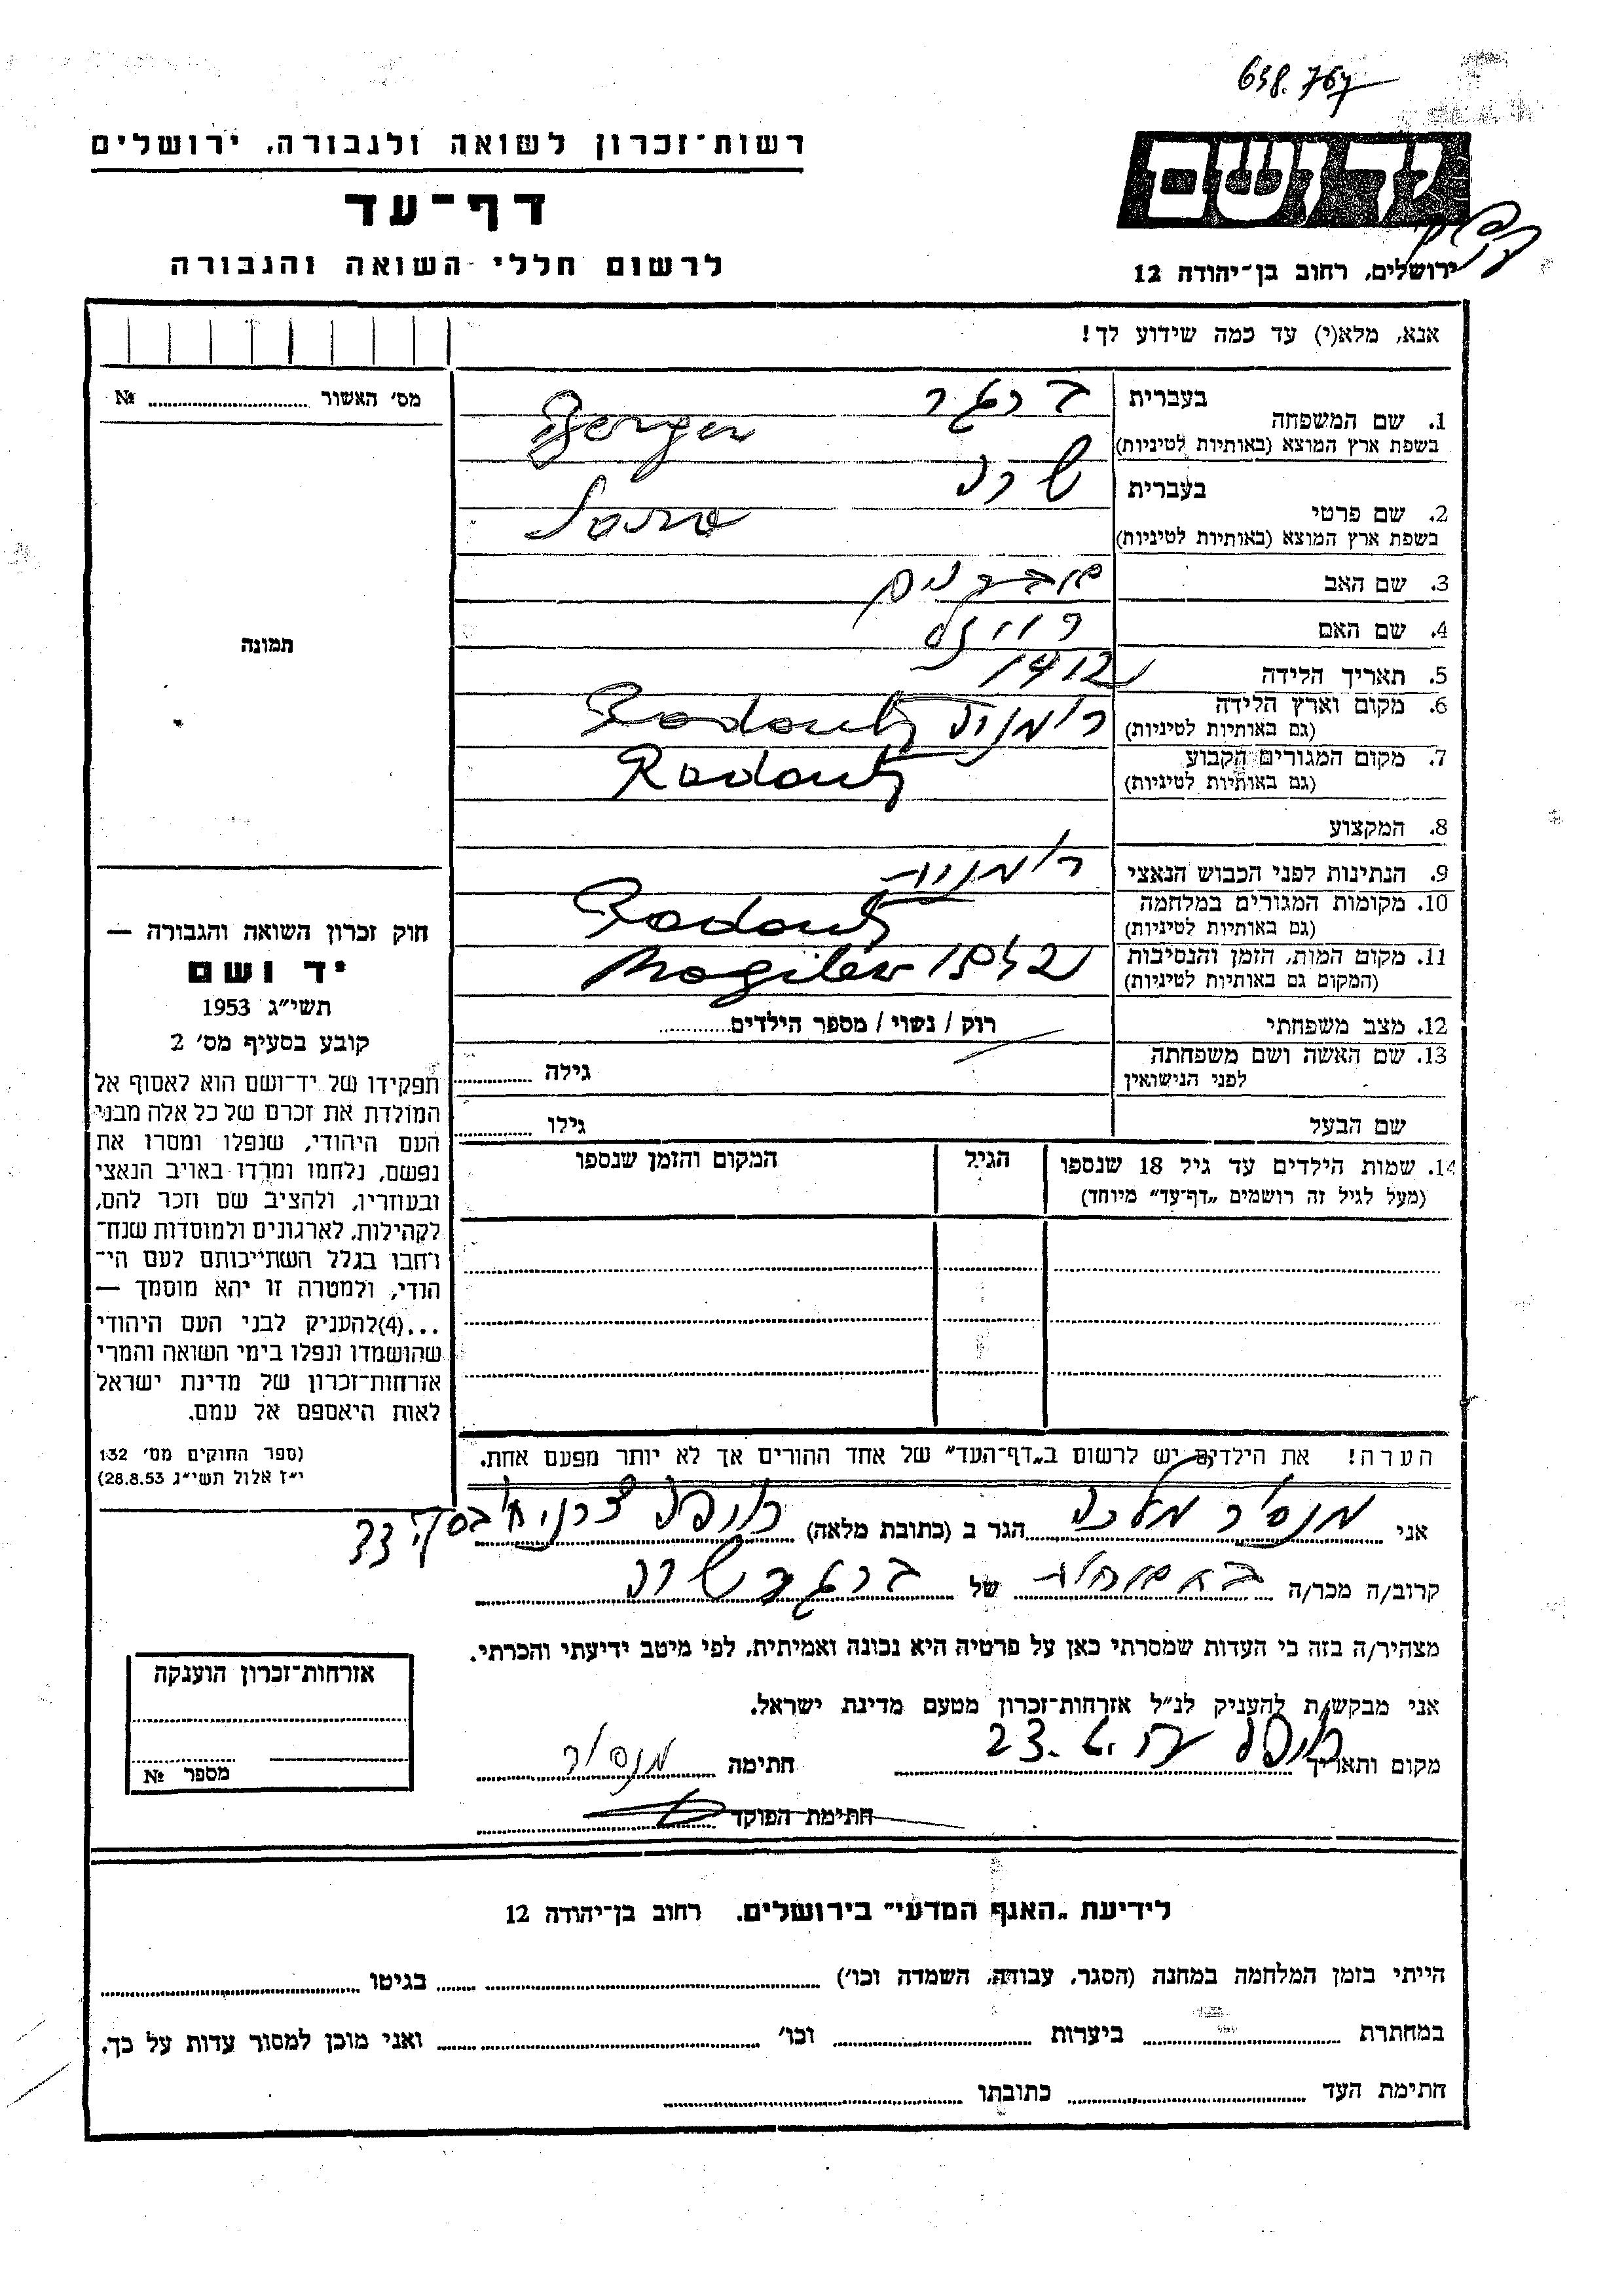 638.767
רשות־זכרון לשואה ולגבורה, ירושלים
דף־עד
לרשום חללי השואה והגבורה
יד ושם
ירושלים, רחוב בן־יהודה 12
אנא, מלא(י) עד כמה שידוע לך!
מס׳ האשור № 
1. שם המשפחה
בעברית ברגר
בשפת ארץ המוצא (באותיות לטיניות) Berger
2. שם פרטי
בעברית שרה
בשפת ארץ המוצא (באותיות לטיניות)
3. שם האב
4. שם האם רוזה
5. תאריך הלידה 1912
6. מקום וארץ הלידה רומניה Radautz
(גם באותיות לטיניות)
7. מקום המגורים הקבוע Radautz
(גם באותיות לטיניות)
8. המקצוע
9. הנתינות לפני הכבוש הנאצי רומנית
10. מקומות המגורים במלחמה Radautz
(גם באותיות לטיניות)
11. מקום המות, הזמן והנסיבות Mogilev 1942
(המקום גם באותיות לטיניות)
12. מצב משפחתי רוק / נשוי / מספר הילדים
13. שם האשה ושם משפחתה
לפני הנישואין
גילה
שם הבעל גילו
14. שמות הילדים עד גיל 18 שנספו
(מעל לגיל זה רושמים „דף־עד״ מיוחד)
הגיל
המקום והזמן שנספו
תמונה
חוק זכרון השואה והגבורה —
יד ושם
תשי״ג 1953
קובע בסעיף מס׳ 2
תפקידו של יד־ושם הוא לאסוף אל
המולדת את זכרם של כל אלה מבני
העם היהודי, שנפלו ומסרו את
נפשם, נלחמו ומרדו באויב הנאצי
ובעוזריו, ולהציב שם וזכר להם,
לקהילות, לארגונים ולמוסדות שנח־
רחבו בגלל השתייכותם לעם הי־
הודי, ולמטרה זו יהא מוסמך —
...(4)להעניק לבני העם היהודי
שהושמדו ונפלו בימי השואה והמרי
אזרחות־זכרון של מדינת ישראל
לאות היאספם אל עמם.
(ספר החוקים מס׳ 132
י״ז אלול תשי״ג 28.8.53)
הערה! את הילדים יש לרשום ב„דף־העד״ של אחד ההורים אך לא יותר מפעם אחת.
אני מנסיר מלכה הגר ב (כתובת מלאה) חיפה 33
קרוב/ה מכר/ה של ברגר שרה
מצהיר/ה בזה כי העדות שמסרתי כאן על פרטיה היא נכונה ואמיתית, לפי מיטב ידיעתי והכרתי.
אני מבקש/ת להעניק לנ״ל אזרחות־זכרון מטעם מדינת ישראל.
מקום ותאריך חיפה 23. חתימה מנסיר
חתימת הפוקד
אזרחות־זכרון הוענקה
מספר №
לידיעת „האגף המדעי״ בירושלים, רחוב בן־יהודה 12
הייתי בזמן המלחמה במחנה (הסגר, עבודה, השמדה וכו׳) בגיטו
במחתרת ביערות וכו׳ ואני מוכן למסור עדות על כך.
חתימת העד כתובתו